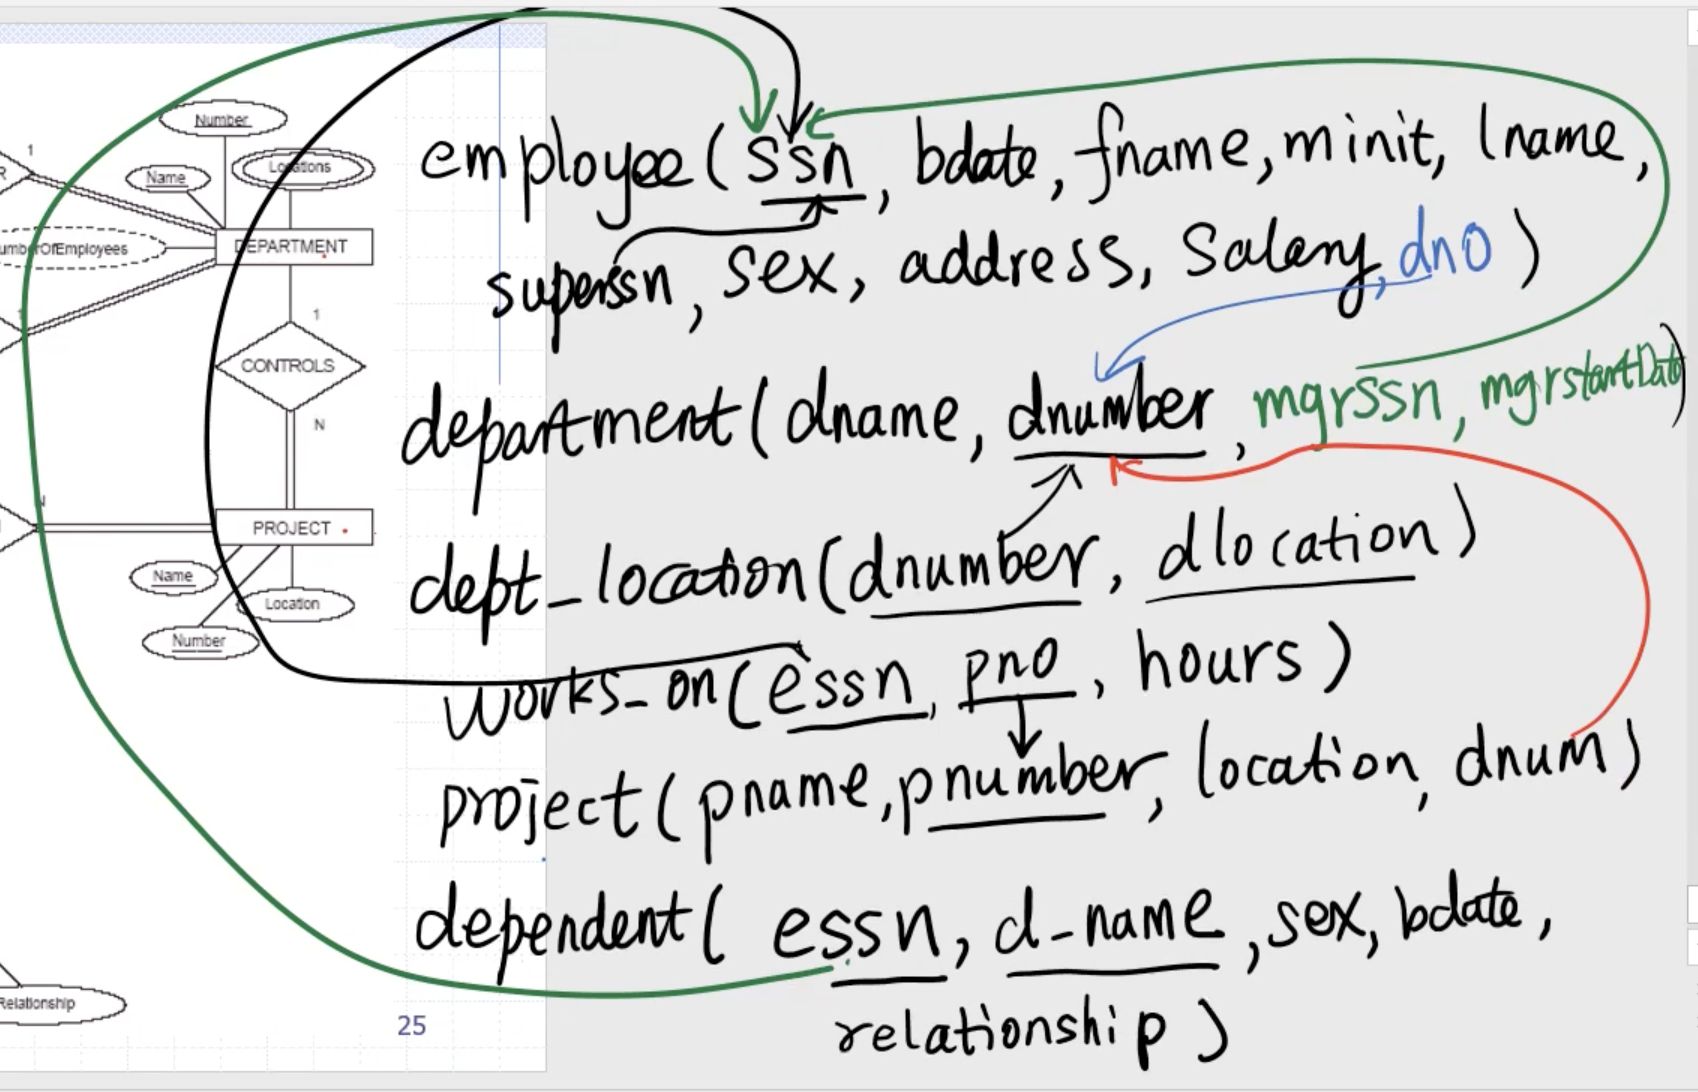 Number
1
R
Name
Locations
umberOfEmployees
DEPARTMENT
1
1
CONTROLS
N
N
PROJECT
Name
Location
Number
Relationship
25
employee(ssn, bdate, fname, minit, lname,
superssn, sex, address, salary, dno)
department(dname, dnumber, mgrssn, mgrstartDate)
dept_location(dnumber, dlocation)
works_on(essn, pno, hours)
project(pname, pnumber, location, dnum)
dependent(essn, d_name, sex, bdate,
relationship)